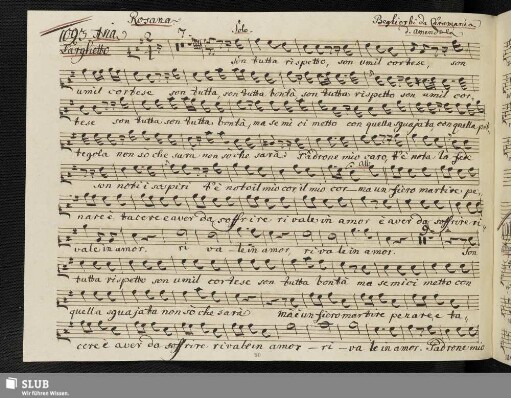 Rosana
Beglierbi di Caramania
d. Amendola
No 3 Aria
Larghetto
Solo
7.
son tutta rispetto, son umil cortese, son
umil cortese son tutta, son tutta bontà, son tutta rispetto son umil cor-
tese son tutta, son tutta bontà, ma se mi ci metto con quella sguajata con quella pet
tegola non sò che sara non sò che sarà: Padrone mio caro, t'è nota la fede
son noti i sospiri t'è noto il mio cor il mio cor ma un fiero martire pe
nare è tacere e aver da soffrire rivale in amor è aver da soffrire ri
vale in amor, ri va le in amor, rivale in amor. Son
tutta rispetto son umil cortese son tutta bontà ma se mi ci metto con
quella sguajata non sò che sarà ma è un fiero martire penare e ta-
cere è aver da soffrire rivale in amor ri va le in amor. Padrone mio
SLUB
Wir führen Wissen.